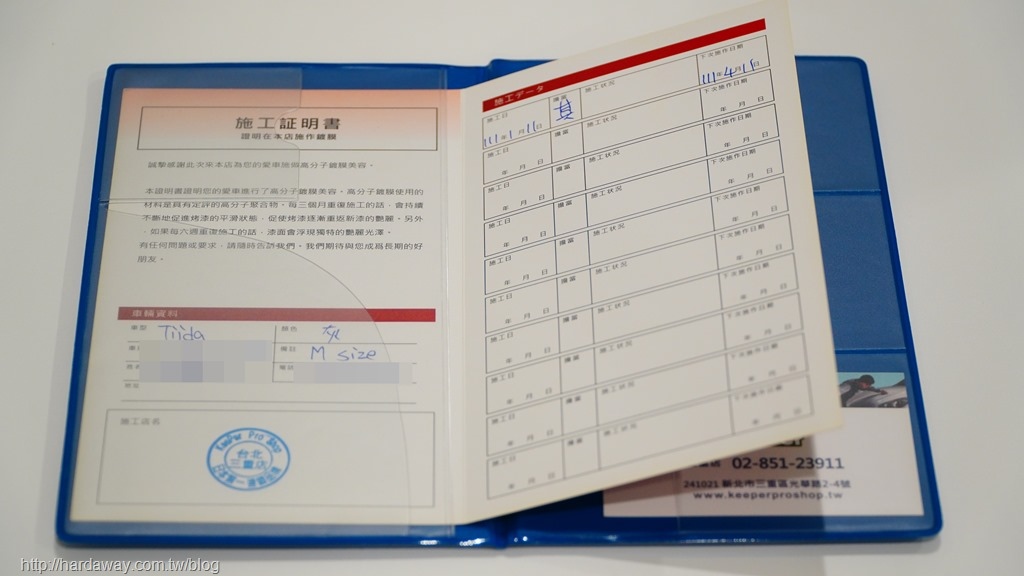 施工証明書
證明在本店施作鍍膜
誠摯感謝此次來本店為您的愛車施做高分子鍍膜美容。
本證明書證明您的愛車進行了高分子鍍膜美容。高分子鍍膜使用的
材料是具有定評的高分子聚合物。每三個月重復施工的話，會持續
不斷地促進烤漆的平滑狀態，促使烤漆逐漸重返新漆的艷麗。另外
，如果每六週重復施工的話，漆面會浮現獨特的艷麗光澤。
有任何問題或要求，請隨時告訴我們。我們期待與您成爲長期的好
朋友。
車輛資料
車型 Tiida 顏色
備註 M size
電話
施工店名
KeePer Pro Shop
台北
三重店
施工データ
施工日 擔當 施工狀況 下次施作日期
111年1月11日 111年4月11日
施工日 擔當 施工狀況 下次施作日期
年 月 日 年 月 日
施工日 擔當 施工狀況 下次施作日期
年 月 日 年 月 日
施工日 擔當 施工狀況 下次施作日期
年 月 日 年 月 日
施工日 擔當 施工狀況 下次施作日期
年 月 日 年 月 日
施工日 擔當 施工狀況 下次施作日期
年 月 日 年 月 日
施工日 擔當 施工狀況 下次施作日期
年 月 日 年 月 日
施工日 擔當 施工狀況 下次施作日期
年 月 日 年 月 日
施工日 擔當 施工狀況 下次施作日期
年 月 日 年 月 日
重店 02-851-23911
241021 新北市三重區光華路2-4號
www.keeperproshop.tw
http://hardaway.com.tw/blog